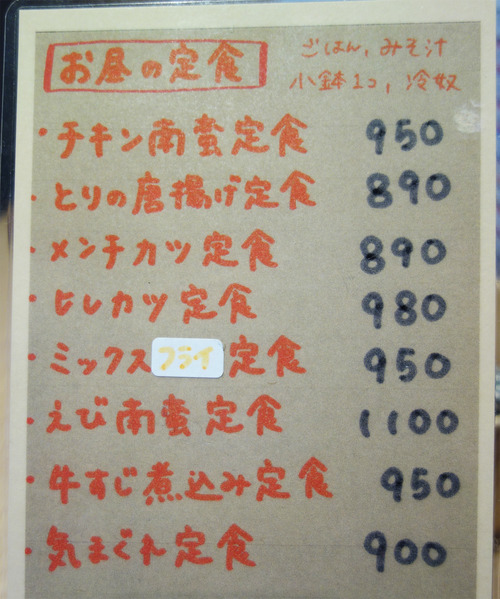 お昼の定食
ごはん,みそ汁
小鉢1コ,冷奴
・チキン南蛮定食 950
・とりの唐揚げ定食 890
・メンチカツ定食 890
・ヒレカツ定食 980
・ミックスフライ定食 950
・えび南蛮定食 1100
・牛すじ煮込み定食 950
・気まぐれ定食 900